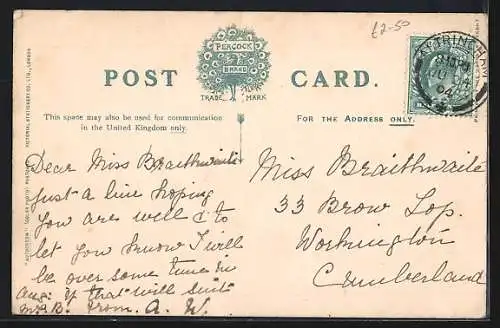 £2-50
PEACOCK
BRAND
TRADE MARK
POST CARD.
This space may also be used for communication
in the United Kingdom only.
FOR THE ADDRESS ONLY.
ALTRINCHAM
04
Dear Miss Braithwaite
just a line hoping
you are well & to
let you know I will
be over some time in
Aug: if that will suit
Mrs B. from A. W.
Miss Braithwaite
33 Brow Top.
Workington
Cumberland